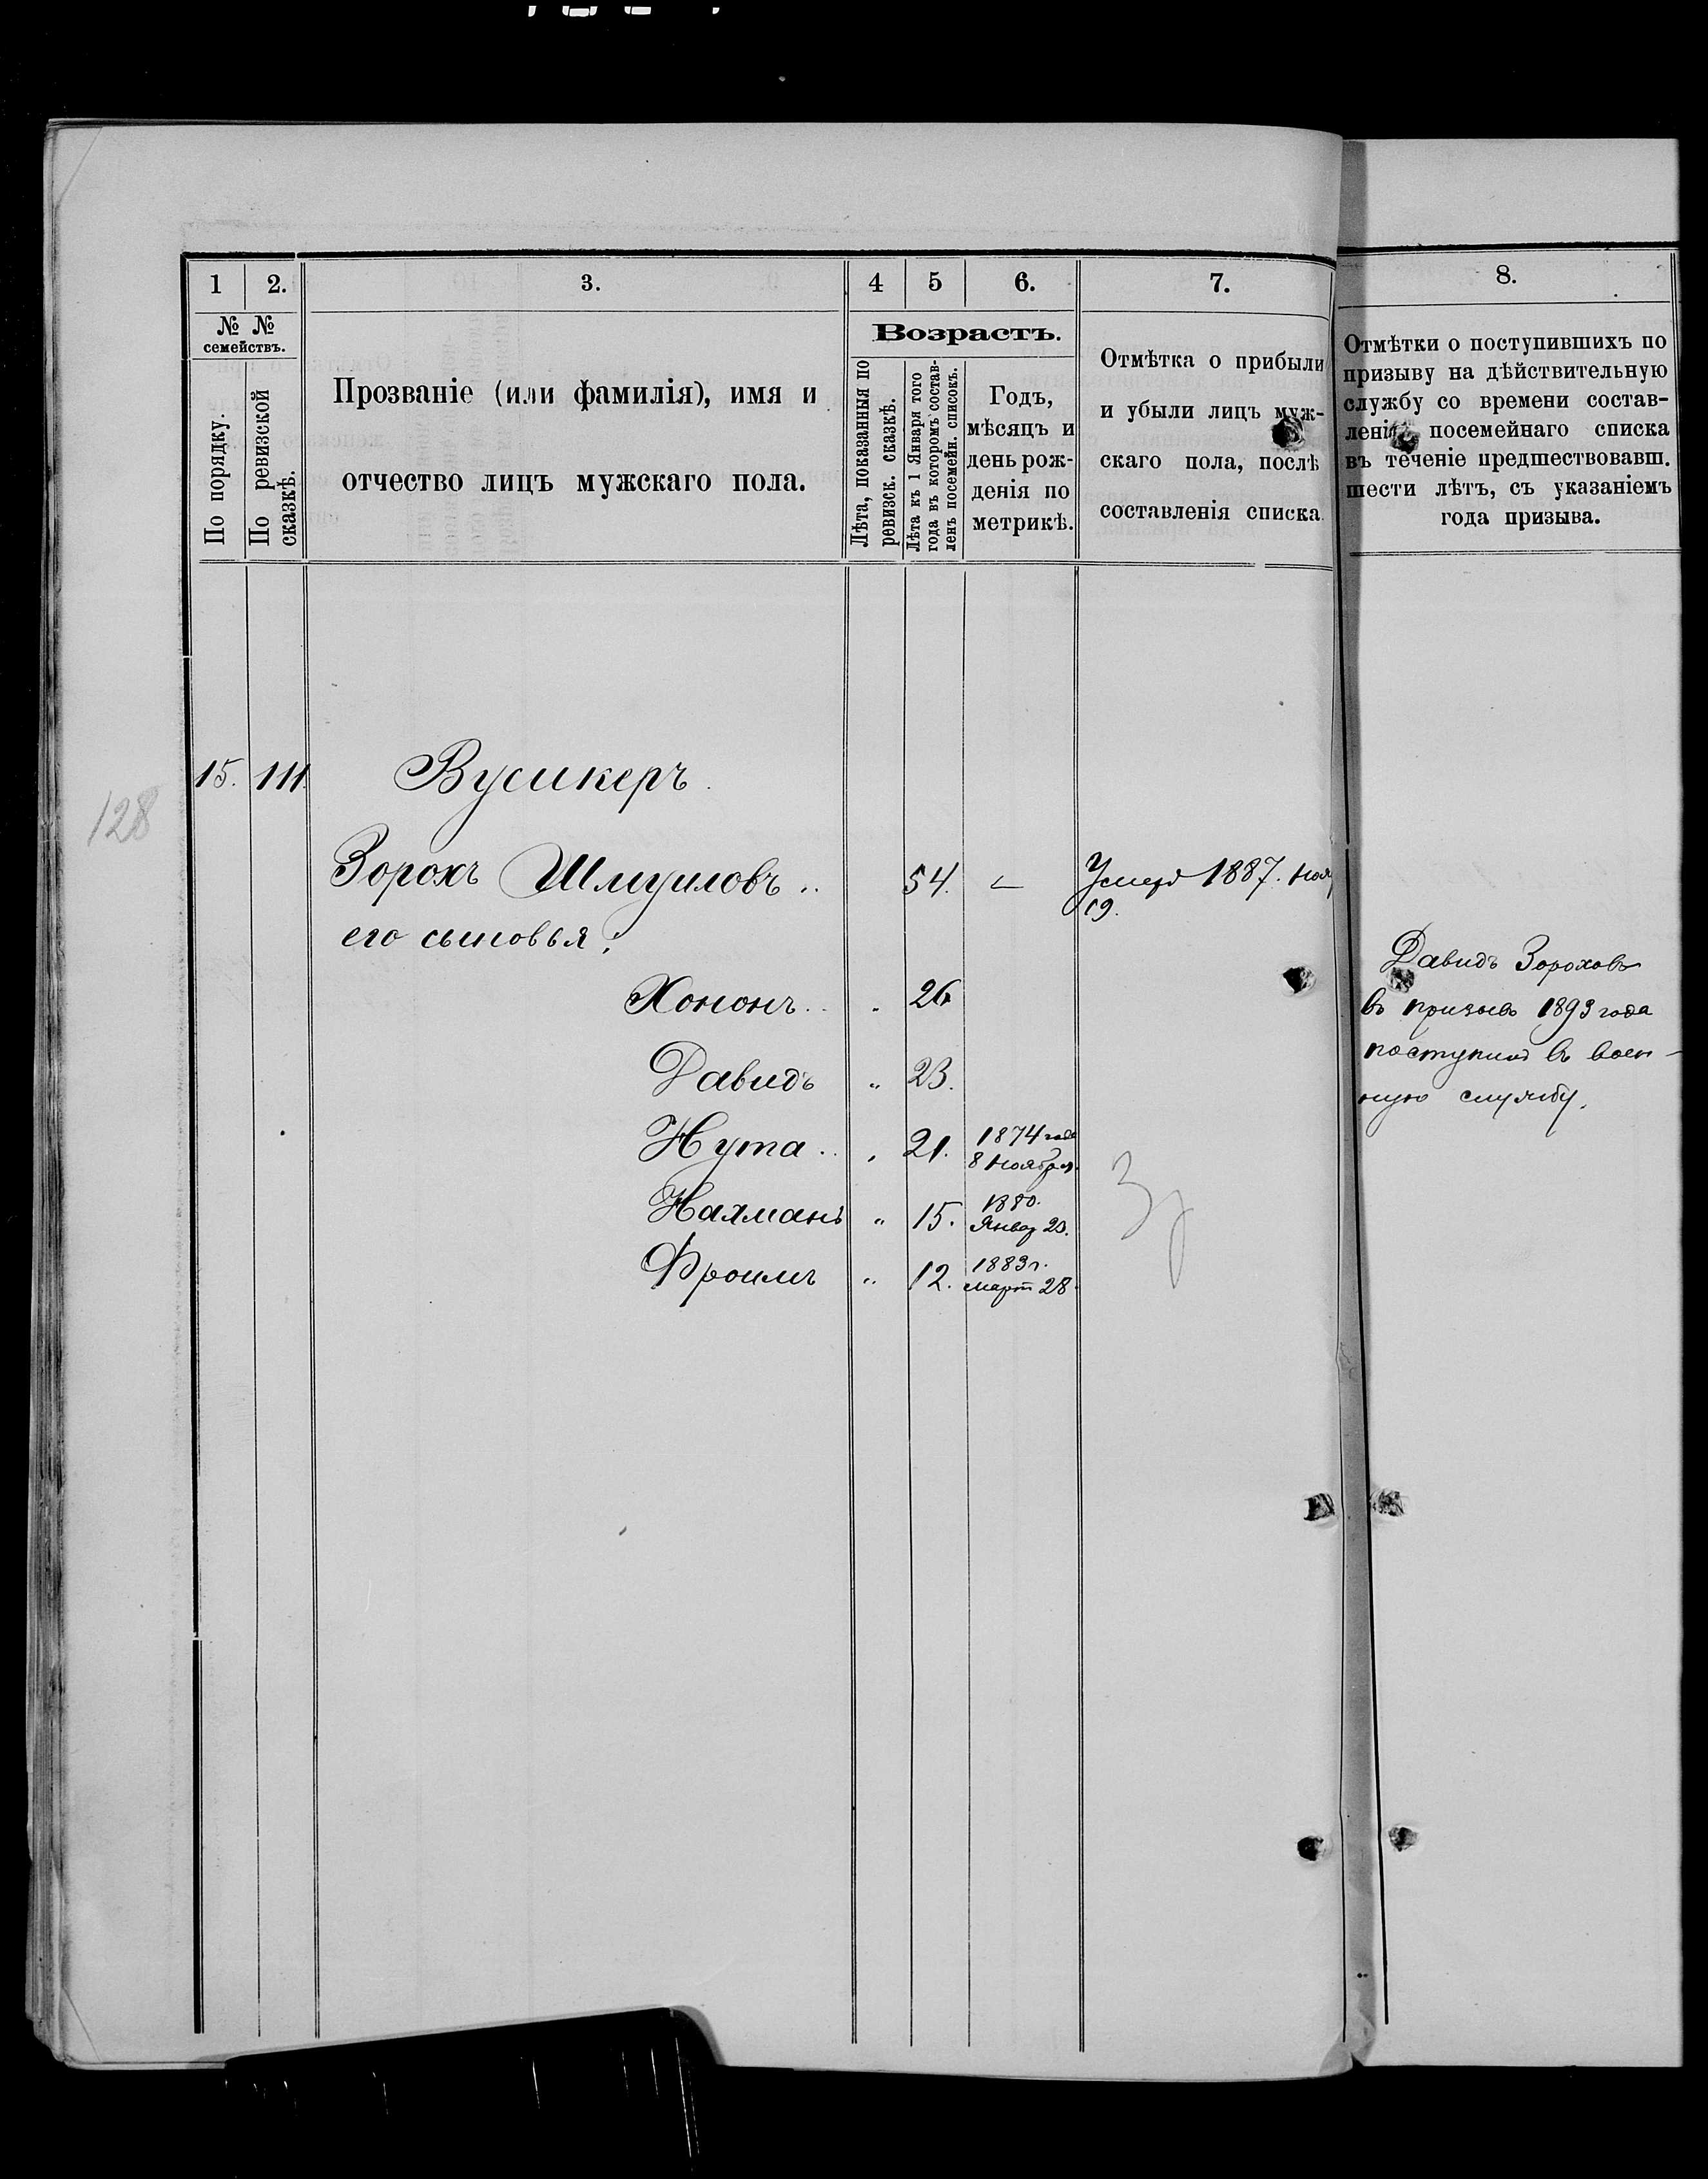 1 2. 3. 4 5 6. 7. 8.
№ №
семействъ.
По порядку.
По ревизской
сказкѣ.
Прозваніе (или фамилія), имя и
отчество лицъ мужскаго пола.
Возрастъ.
Лѣта, показанныя по
ревизск. сказкѣ.
Лѣта къ 1 Января того
года въ которомъ состав-
ленъ посемейн. списокъ.
Годъ,
мѣсяцъ и
день рож-
денія по
метрикѣ.
Отмѣтка о прибыли
и убыли лицъ муж-
скаго пола, послѣ
составленія списка.
Отмѣтки о поступившихъ по
призыву на дѣйствительную
службу со времени состав-
ленія посемейнаго списка
въ теченіе предшествовавш.
шести лѣтъ, съ указаніемъ
года призыва.
128
15. 111. Вусикеръ.
Зорохъ Шмуиловъ .. 54. Умеръ 1887. Ноя
19.
его сыновья:
Хононъ .. 26
Давидъ " 23.
Нута .. 21. 1874 года
8 Ноября.
Нахманъ " 15. 1880.
Январ 20.
Фроимъ " 12. 1883 г.
Март 28.
Давидъ Зороховъ
въ призывъ 1893 года
поступилъ въ воен-
ную службу.